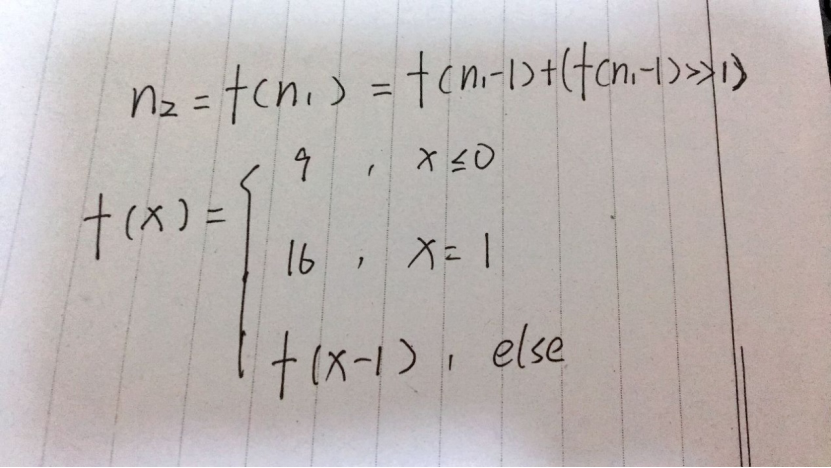 n₂ = f(n₁) = f(n₁-1)+(f(n₁-1)>>1)
9 , x ≤ 0
f(x) = {
16 , x = 1
f(x-1) , else